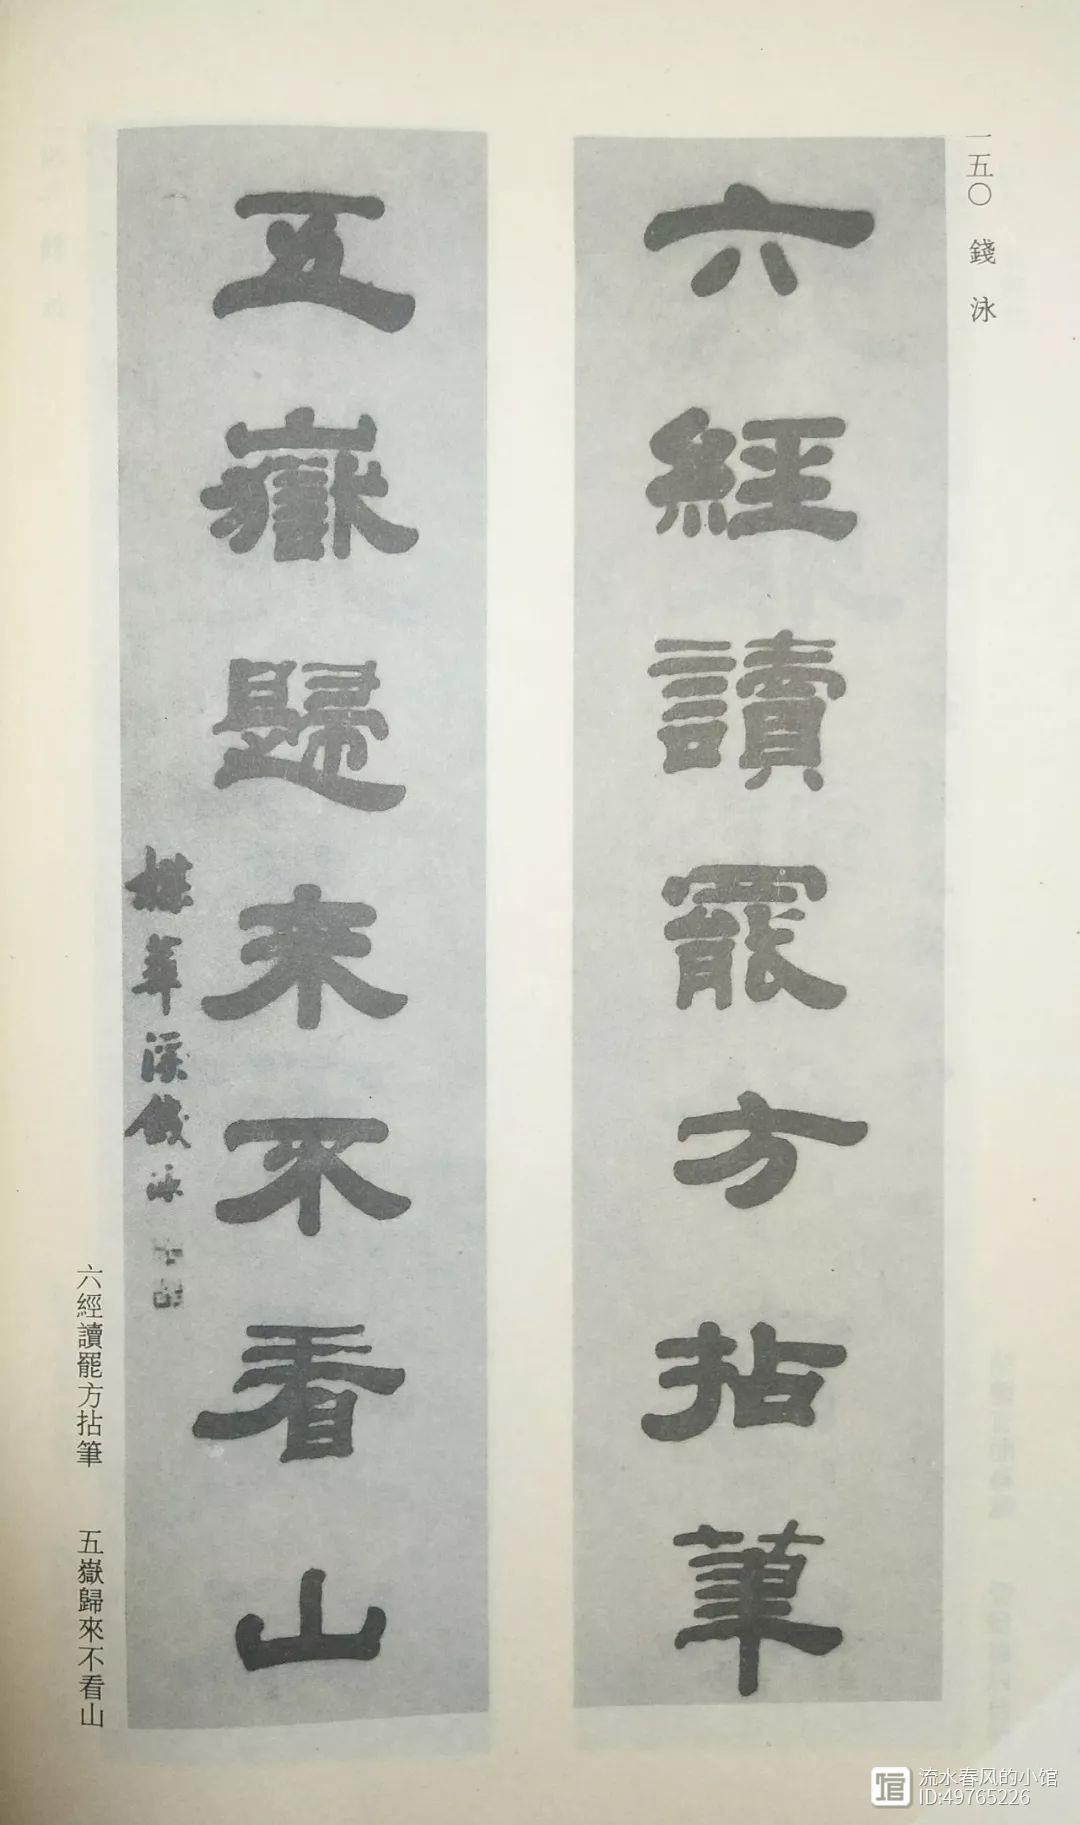 一五〇 錢泳
六經讀罷方拈筆
五嶽歸來不看山
梅華溪錢泳
六經讀罷方拈筆 五嶽歸來不看山
流水春风的小馆
ID:49765226